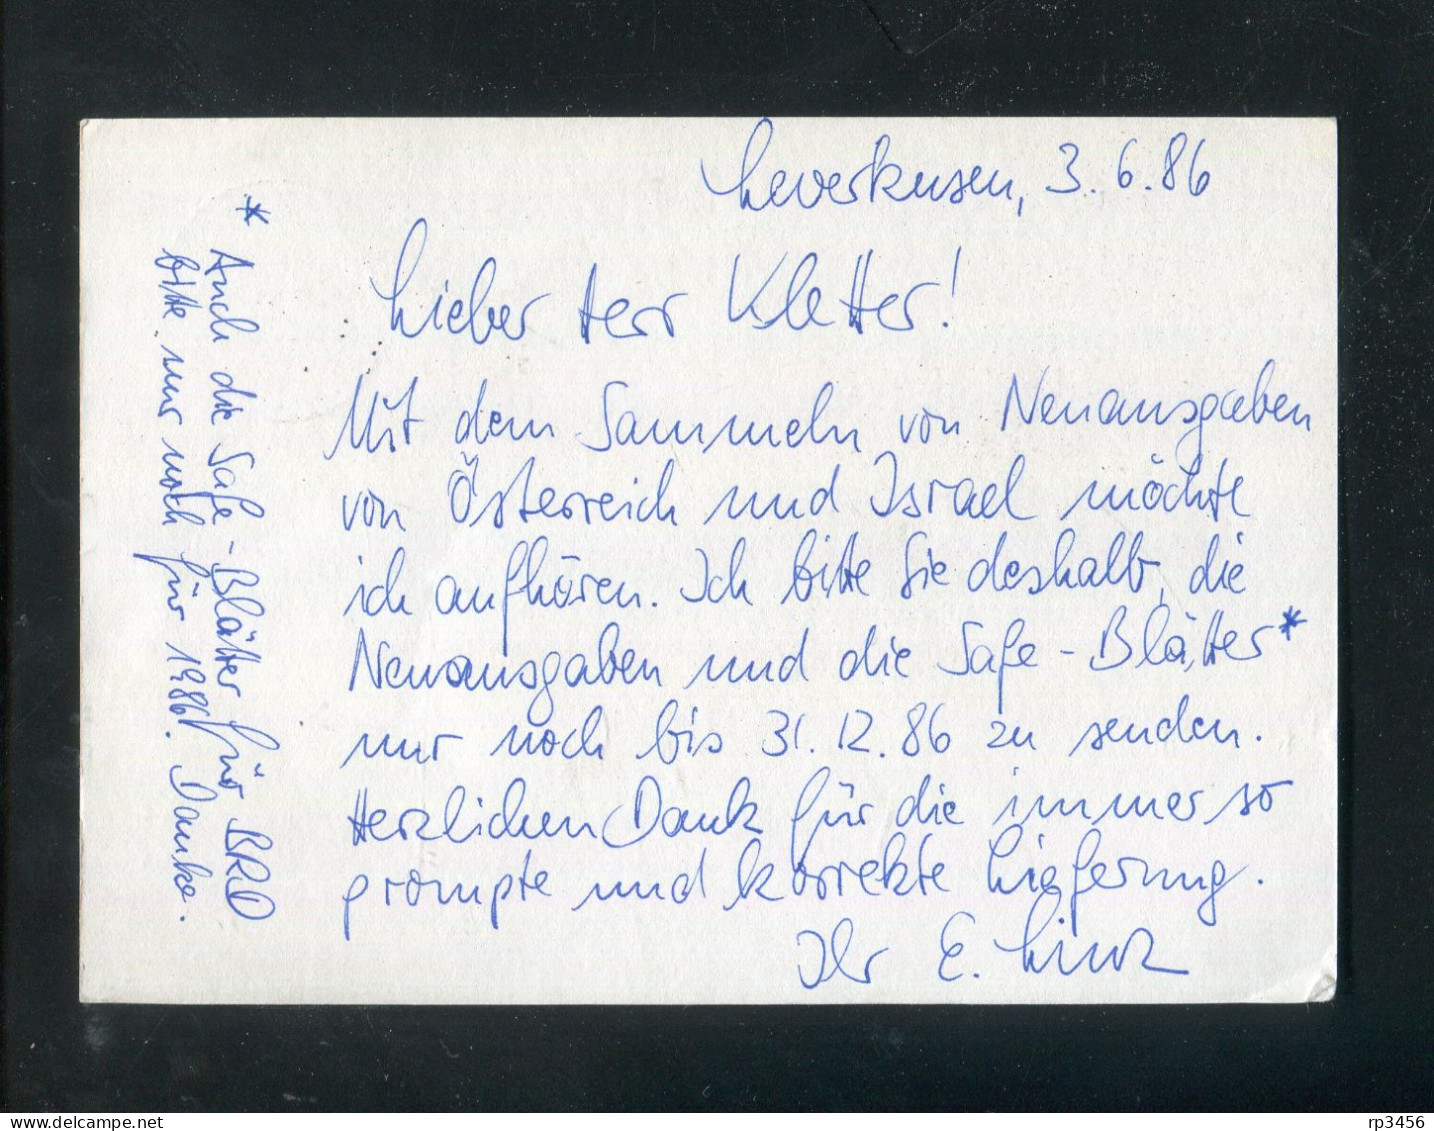 Leverkusen, 3.6.86
Lieber Herr Kletter!
Mit dem Sammeln von Neuausgaben
von Österreich und Israel möchte
ich aufhören. Ich bitte Sie deshalb, die
Neuausgaben und die Safe-Blätter*
nur noch bis 31.12.86 zu senden.
Herzlichen Dank für die immer so
prompte und korrekte Lieferung.
Ihr E.
* Auch die Safe-Blätter für BRD
bitte nur noch für 1986. Danke.
delcampe.net
rp3456